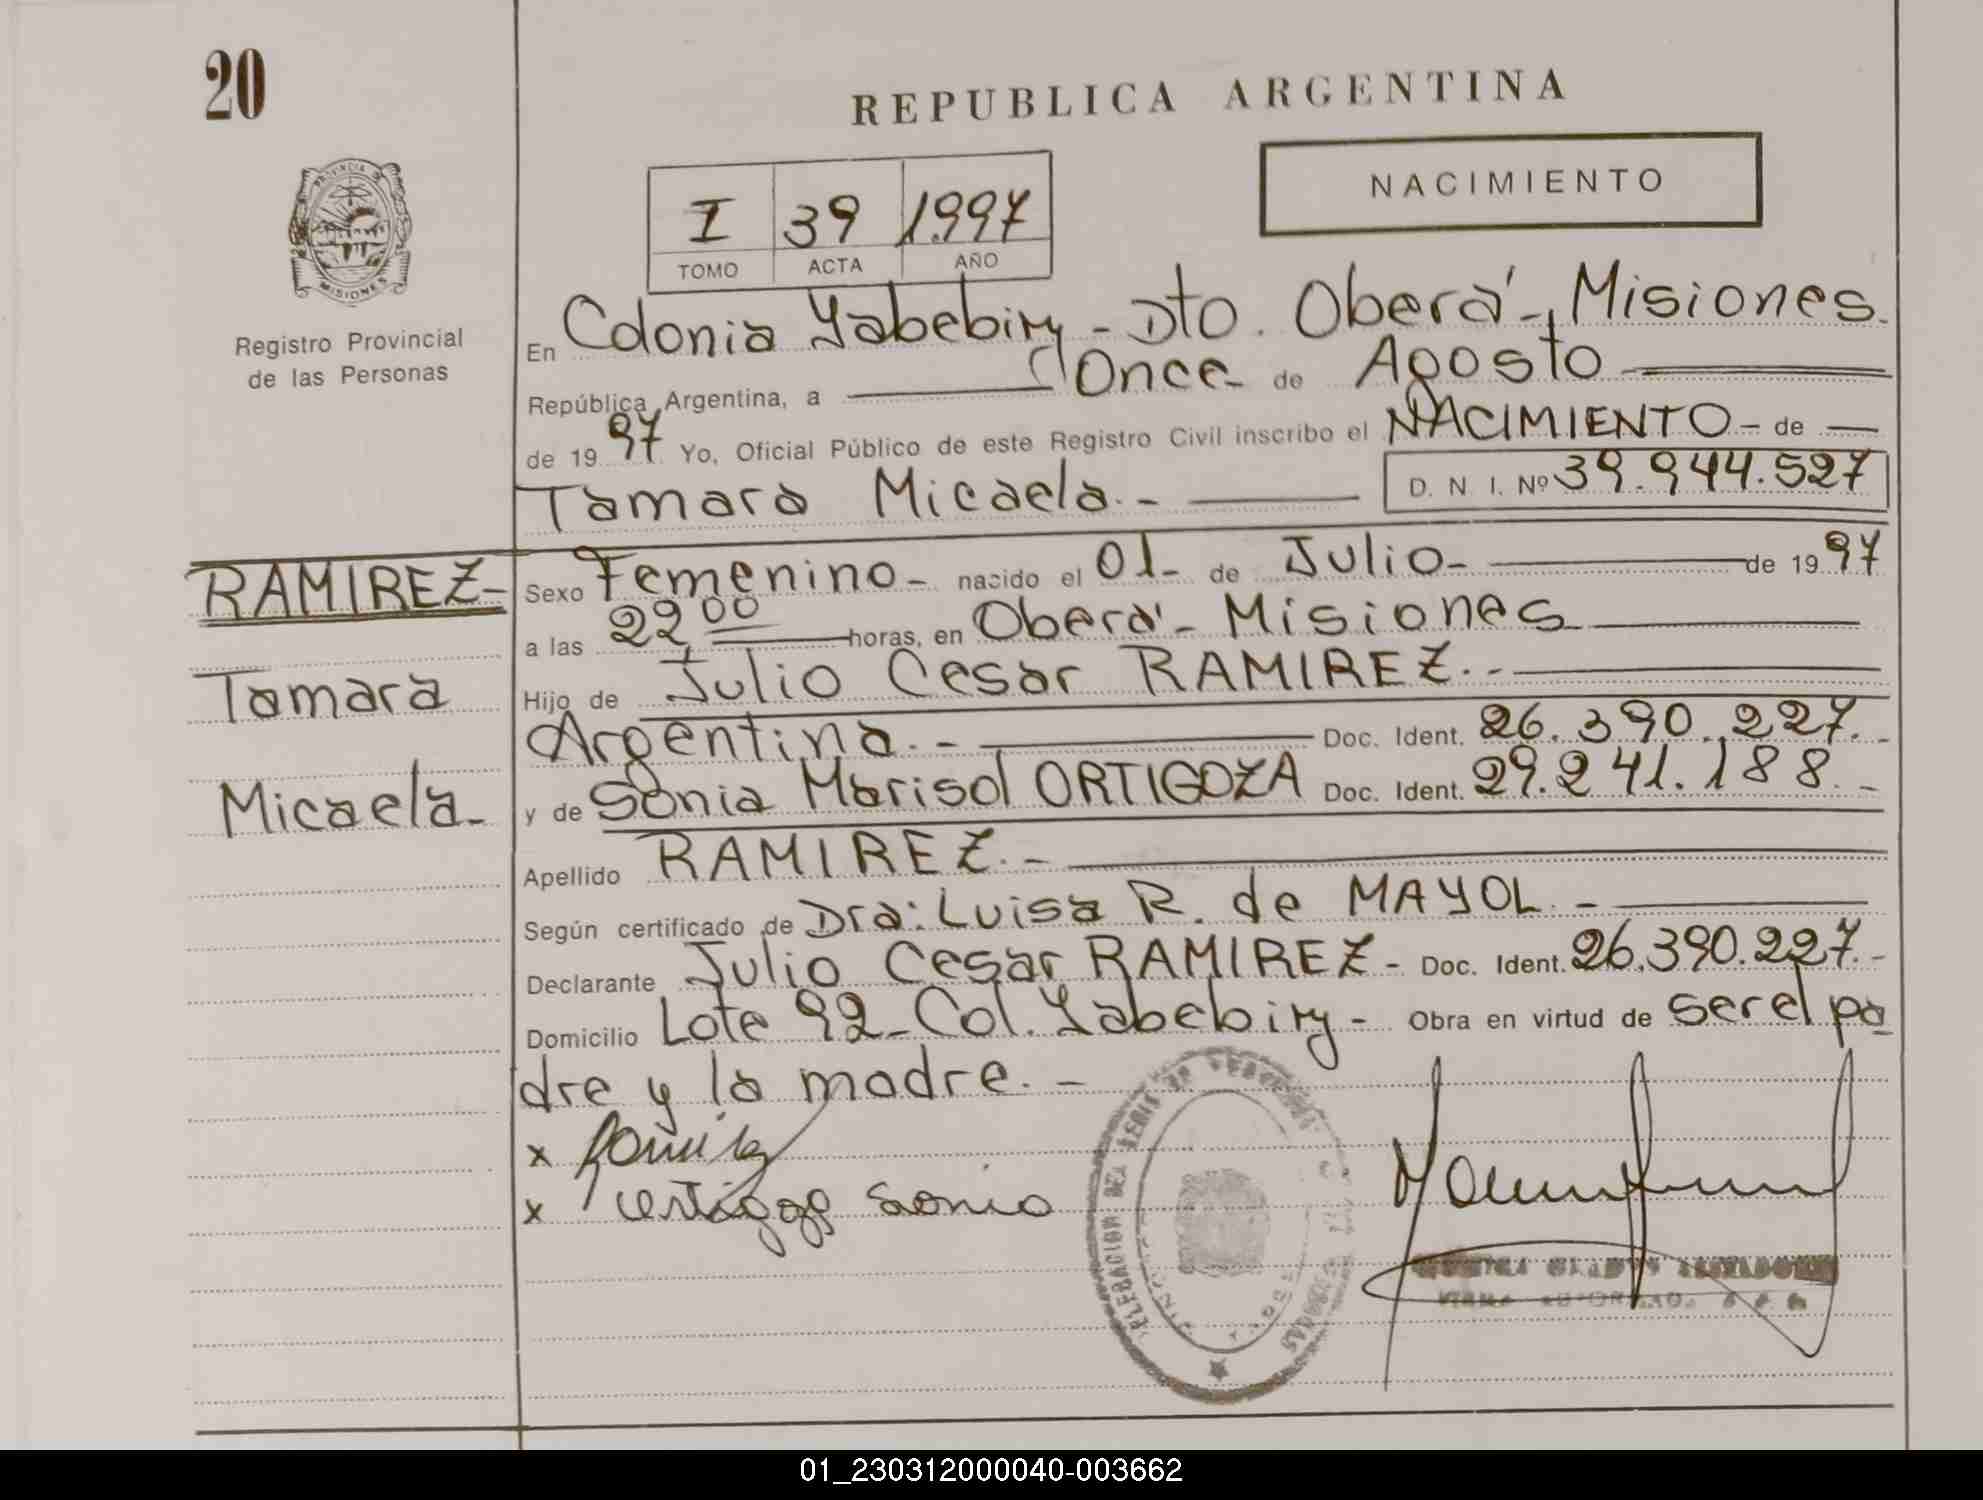 20
REPUBLICA ARGENTINA
NACIMIENTO
I 39 1997
TOMO ACTA AÑO
PROVINCIA DE
MISIONES
Registro Provincial
de las Personas
En Colonia Yabebiry - Dto. Oberá -, Misiones.
República Argentina, a Once - de Agosto
de 19 97 Yo, Oficial Público de este Registro Civil inscribo el NACIMIENTO - de
Tamara Micaela. - D. N. I. Nº 39.944.527
RAMIREZ -
Tamara
Micaela -
Sexo Femenino - nacido el 01 - de Julio - de 19 97
a las 22,00 horas, en Oberá - Misiones
Hijo de Julio Cesar RAMIREZ. -
Argentina. - Doc. Ident. 26.390.227. -
y de Sonia Marisol ORTIGOZA Doc. Ident. 29.241.188. -
Apellido RAMIREZ. -
Según certificado de Dra: Luisa R. de MAYOL. -
Declarante Julio Cesar RAMIREZ - Doc. Ident. 26.390.227. -
Domicilio Lote 92 - Col. Yabebiry - Obra en virtud de ser el pa
dre y la madre. -
x Ramirez
x Sonia
01_230312000040-003662